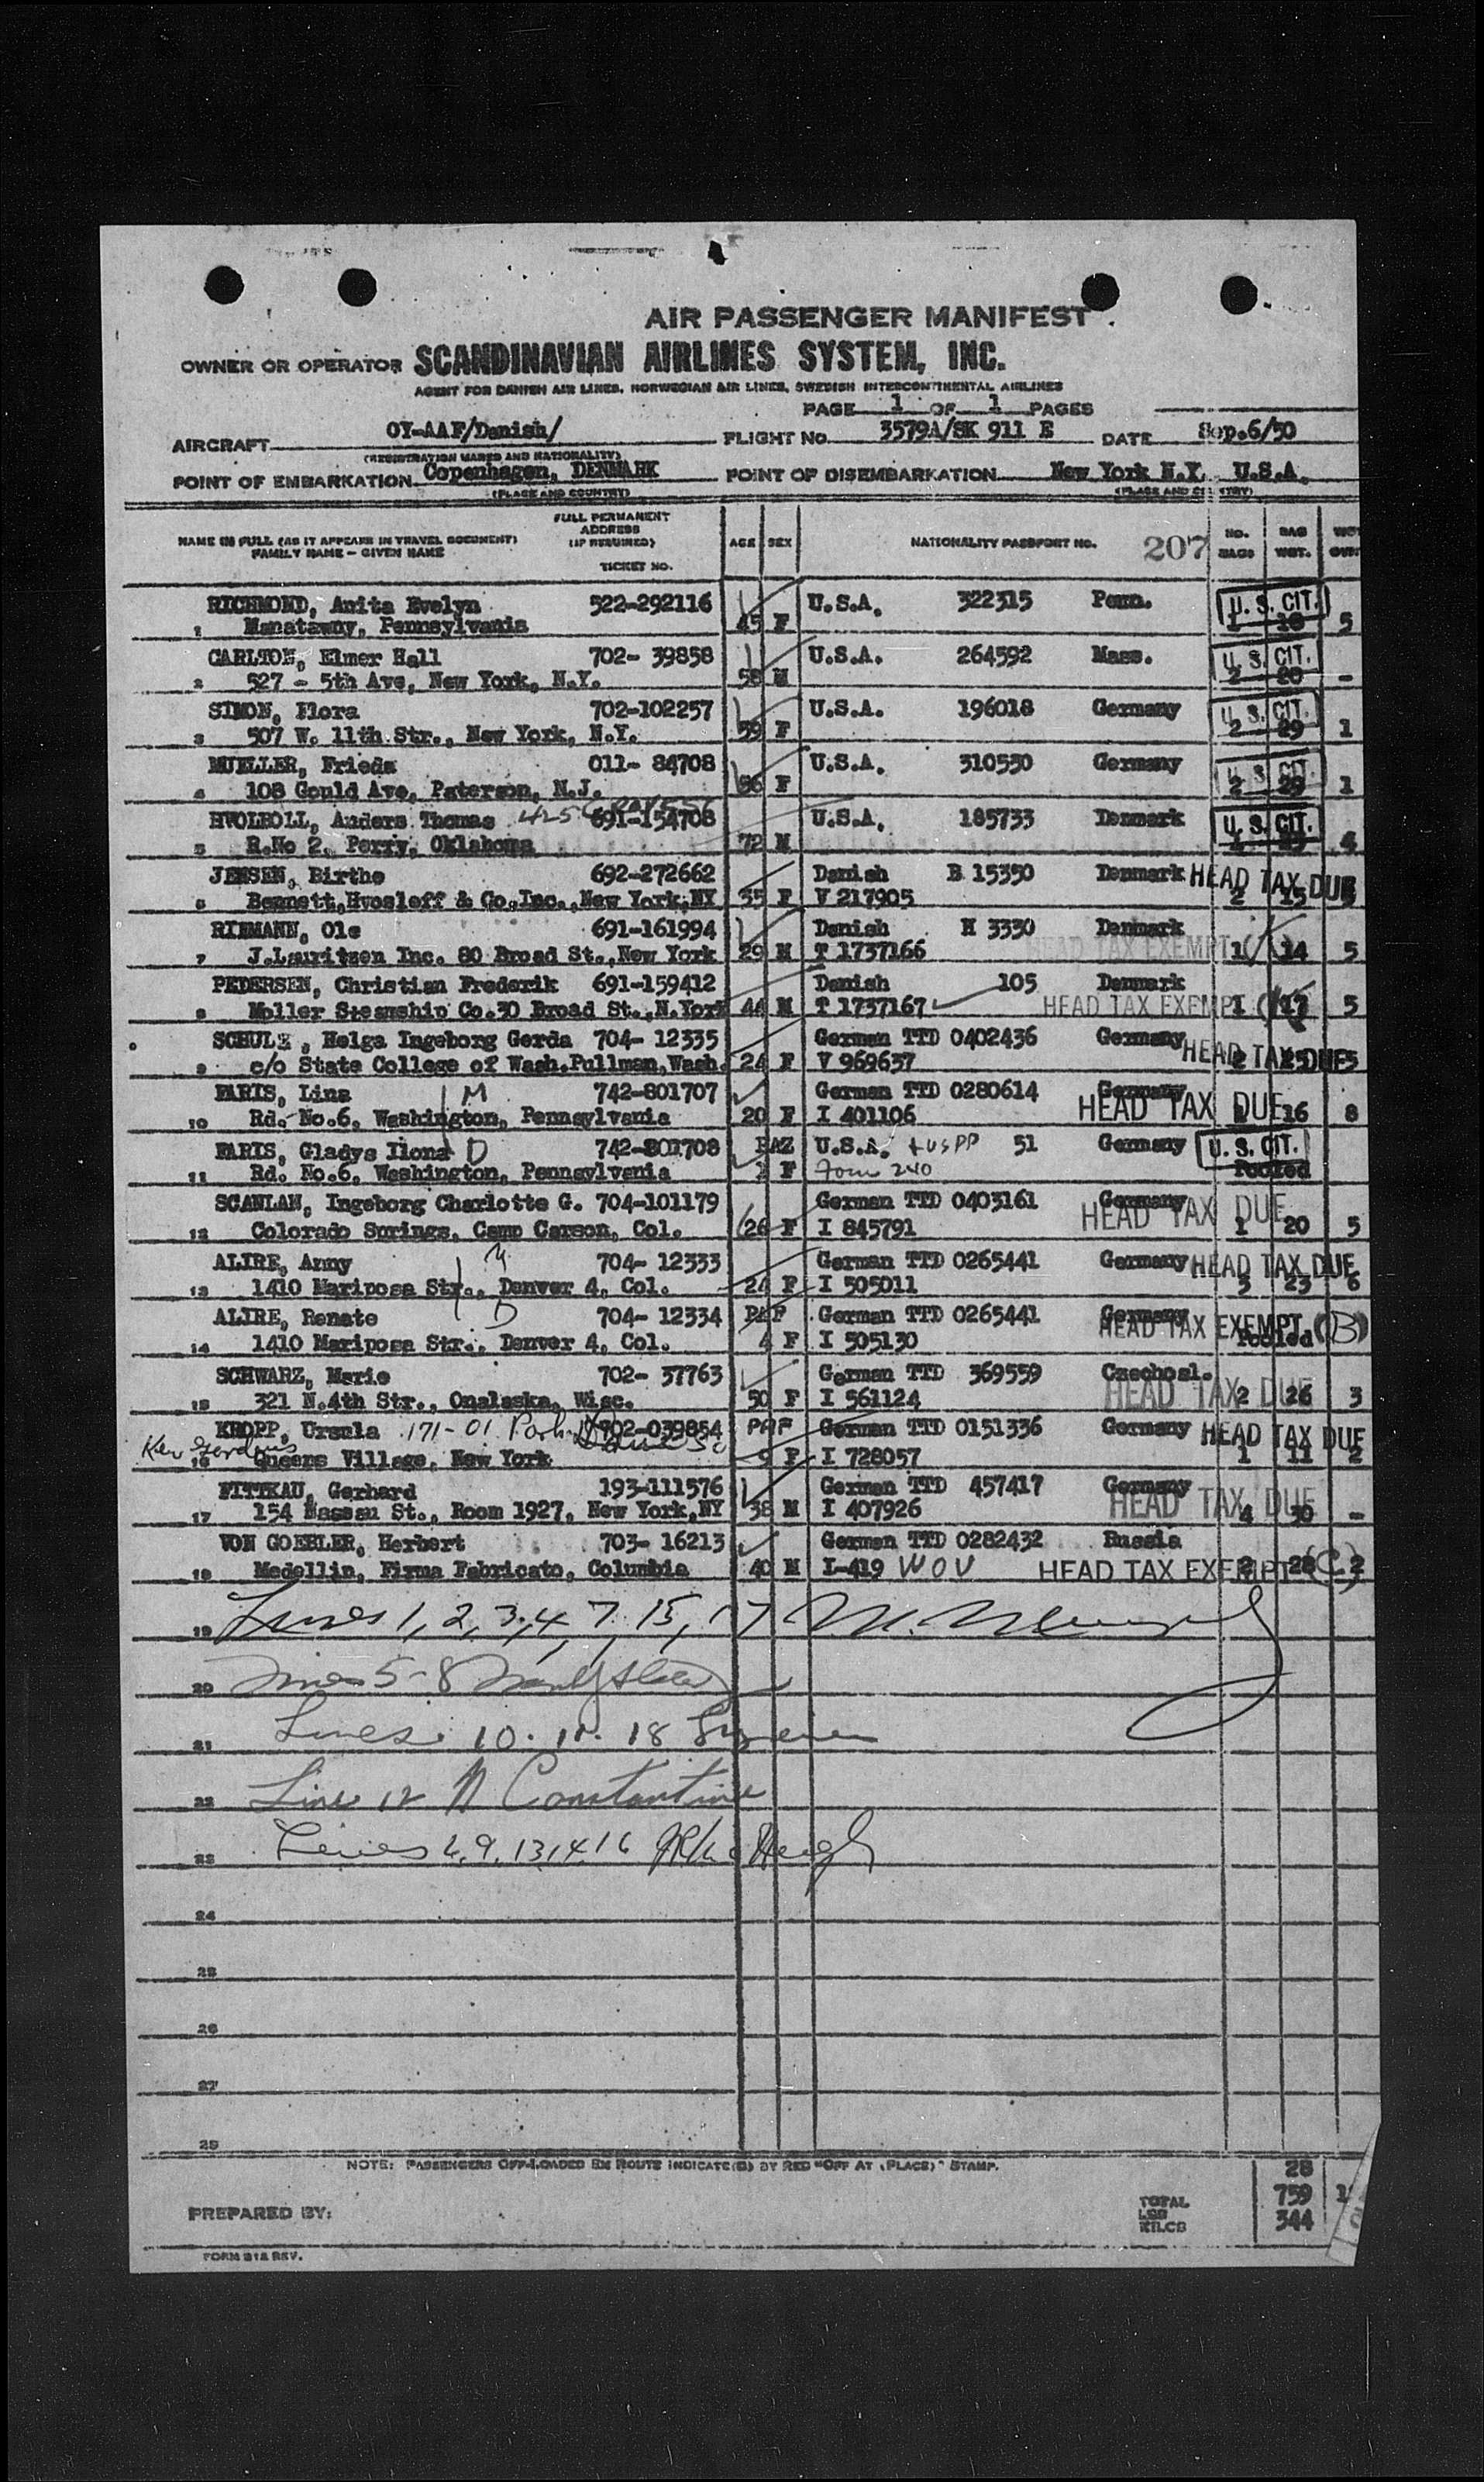 AIR PASSENGER MANIFEST
OWNER OR OPERATOR SCANDINAVIAN AIRLINES SYSTEM, INC.
AGENT FOR DANISH AIR LINES, NORWEGIAN AIR LINES, SWEDISH INTERCONTINENTAL AIRLINES
PAGE 1 OF 1 PAGES
AIRCRAFT OY-AAF/Danish/ FLIGHT No. 3579A/SK 911 E DATE Sep.6/50
(REGISTRATION MARKS AND NATIONALITY)
POINT OF EMBARKATION Copenhagen, DENMARK POINT OF DISEMBARKATION New York N.Y. U.S.A.
(PLACE AND COUNTRY) (PLACE AND COUNTRY)
NAME IN FULL (AS IT APPEARS IN TRAVEL DOCUMENT) FAMILY NAME - GIVEN NAME FULL PERMANENT ADDRESS (IF REQUIRED) TICKET NO. AGE SEX NATIONALITY PASSPORT NO. 207 NO. BAGS BAG WGT.
RICHMOND, Anita Evelyn 522-292116 U.S.A. 322315 Penn. U.S. CIT.
1 Manatawny, Pennsylvania 45 F 5
CARLTON, Elmer Hall 702- 39858 U.S.A. 264592 Mass. U.S. CIT.
2 527 - 5th Ave, New York, N.Y. 58 M 2 20 -
SIMON, Flora 702-102257 U.S.A. 196018 Germany U.S. CIT.
3 507 W. 11th Str., New York, N.Y. 59 F 2 29 1
MUELLER, Frieda 011- 84708 U.S.A. 310530 Germany U.S. CIT.
4 108 Gould Ave, Paterson, N.J. 56 F 2 29 1
HVOLBOLL, Anders Thomas 691-154708 U.S.A. 185733 Denmark U.S. CIT.
5 R.No 2, Perry, Oklahoma 72 M 4
JENSEN, Birthe 692-272662 Danish B 15350 Denmark HEAD TAX DUE
6 Bennett,Hvosleff & Co.Inc.,New York,NY 35 F V 217905 2 15
RIEMANN, Ole 691-161994 Danish H 3330 Denmark
7 J.Lauritzen Inc. 80 Broad St.,New York 29 M T 1737166 HEAD TAX EXEMPT 1 14 5
PEDERSEN, Christian Frederik 691-159412 Danish 105 Denmark
8 Moller Steamship Co.30 Broad St.,N.York 44 M T 1737167 HEAD TAX EXEMPT 1 17 5
SCHULZ, Helga Ingeborg Gerda 704- 12335 German TTD 0402436 Germany HEAD TAX DUE
9 c/o State College of Wash.Pullman,Wash. 24 F V 969637 2 15 5
FARIS, Lina M 742-801707 German TTD 0280614 Germany
10 Rd. No.6, Washington, Pennsylvania 20 F I 401106 HEAD TAX DUE 16 8
FARIS, Gladys Ilona D 742-801708 U.S.A. + US PP 51 Germany U.S. CIT.
11 Rd. No.6, Washington, Pennsylvania F Form 240 Pooled
SCANLAN, Ingeborg Charlotte G. 704-101179 German TTD 0403161 Germany HEAD TAX DUE
12 Colorado Springs, Camp Carson, Col. 26 F I 845791 1 20 5
ALIRE, Anny M 704- 12333 German TTD 0265441 Germany HEAD TAX DUE
13 1410 Mariposa Str., Denver 4, Col. 24 F I 505011 3 23 6
ALIRE, Renate D 704- 12334 German TTD 0265441 Germany HEAD TAX EXEMPT (B)
14 1410 Mariposa Str., Denver 4, Col. 4 F I 505130 Pooled
SCHWARZ, Marie 702- 37763 German TTD 369559 Czechosl.
15 321 N.4th Str., Onalaska, Wisc. 50 F I 561124 HEAD TAX DUE 2 26 3
KROPP, Ursula 171-01 Park 702-039854 German TTD 0151336 Germany HEAD TAX DUE
Kew Gardens
16 Queens Village, New York 9 F I 728057 1 11 2
FITTKAU, Gerhard 193-111576 German TTD 457417 Germany
17 154 Nassau St., Room 1927, New York,NY 38 M I 407926 HEAD TAX DUE 4 30 -
VON GOEBLER, Herbert 703- 16213 German TTD 0282432 Russia
18 Medellin, Firma Fabricato, Columbia 40 M I-419 WOV HEAD TAX EXEMPT (C) 2 28 2
19 Lines 1, 2, 3, 4, 7, 15, 17
20 Lines 5-8
21 Lines 10. 11. 18
22 Line 12 N Constantine
23 Lines 6, 9, 13, 14, 16
24
25
26
27
28
NOTE: PASSENGERS OFF-LOADED EN ROUTE INDICATE(D) BY RED "OFF AT (PLACE)" STAMP.
28
PREPARED BY: TOTAL
LBS 759
KILOS 344
FORM 218 REV.